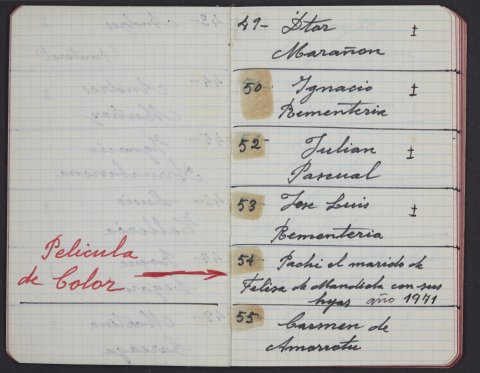 Pelicula
de Color
49- Dtor ±
Marañon
50- Ignacio ±
Rementeria
52- Julian ±
Pascual
53- Jose Luis ±
Rementeria
54- Pachi el marido de
Felisa de Mandiola con sus
hijas año 1971
55- Carmen de
Amorrotu